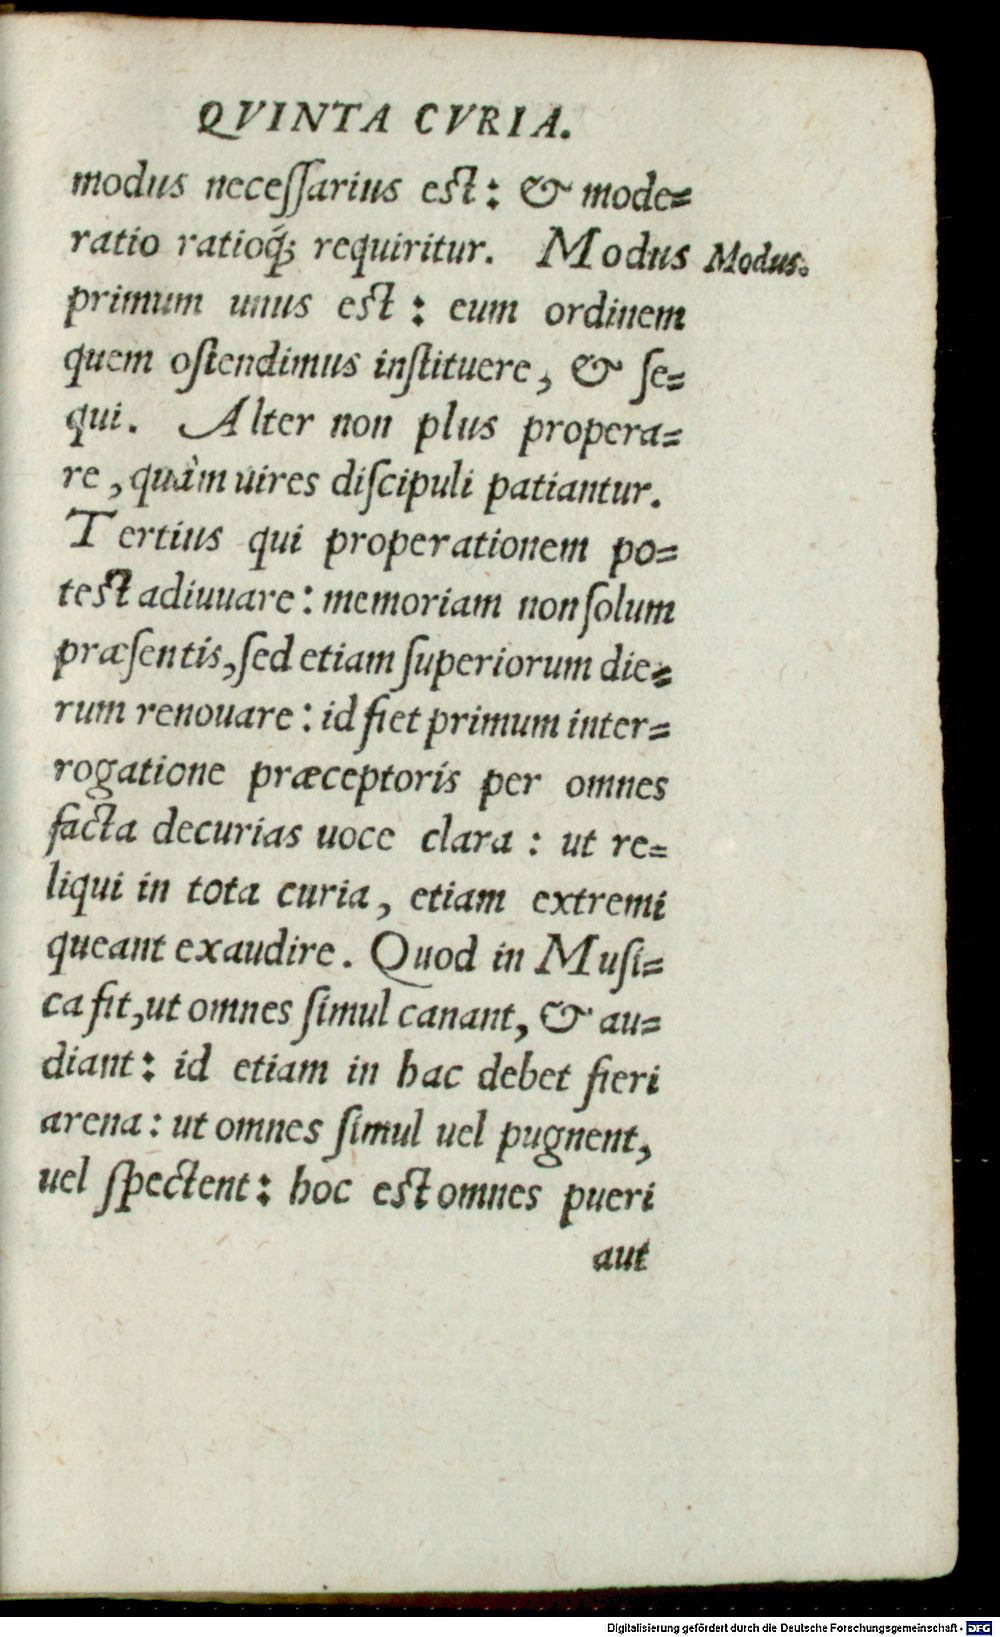 QVINTA CVRIA.
modus neceſſarius est: & mode=
ratio ratioq́; requiritur. Modus
Modus.
primum unus est: eum ordinem
quem oſtendimus inſtituere, & ſe=
qui. Alter non plus propera=
re, quàm uires diſcipuli patiantur.
Tertius qui properationem po=
test adiuuare: memoriam non ſolum
præſentis, ſed etiam ſuperiorum die=
rum renouare: id fiet primum inter=
rogatione præceptoris per omnes
facta decurias uoce clara: ut re=
liqui in tota curia, etiam extremi
queant exaudire. Quod in Muſi=
ca fit, ut omnes ſimul canant, & au=
diant: id etiam in hac debet fieri
arena: ut omnes ſimul uel pugnent,
uel ſpectent: hoc est omnes pueri
aut
Digitalisierung gefördert durch die Deutsche Forschungsgemeinschaft - DFG